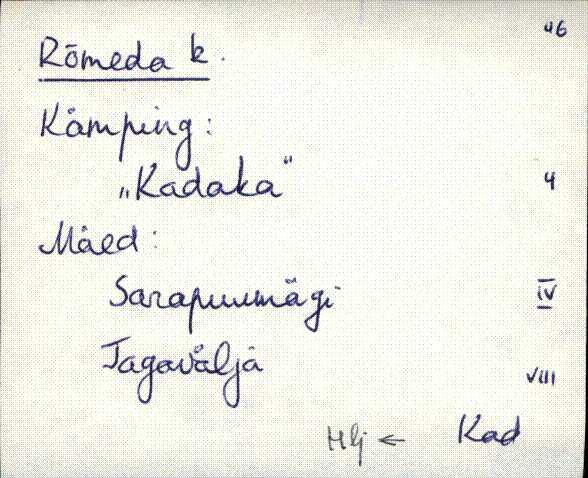 46
Rõmeda k.
Kämping:
„Kadaka" 4
Mäed:
Sarapuumägi IV
Tagaväljä VIII
Hlj ← Kad